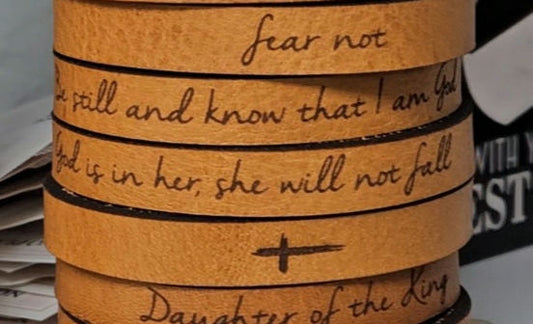 fear not
Be still and know that I am God
God is in her, she will not fall
Daughter of the King
WITH
EST